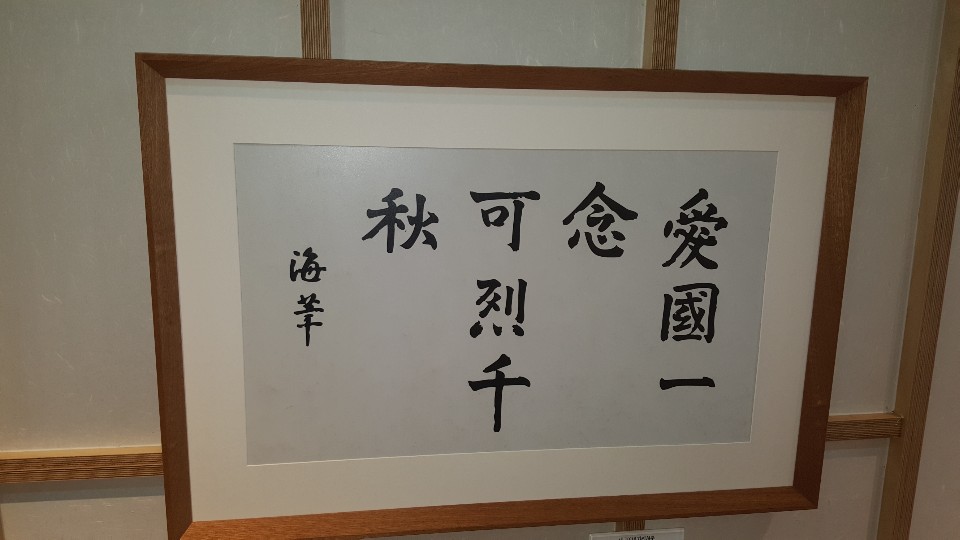 愛國一
念
可烈千
秋
海華